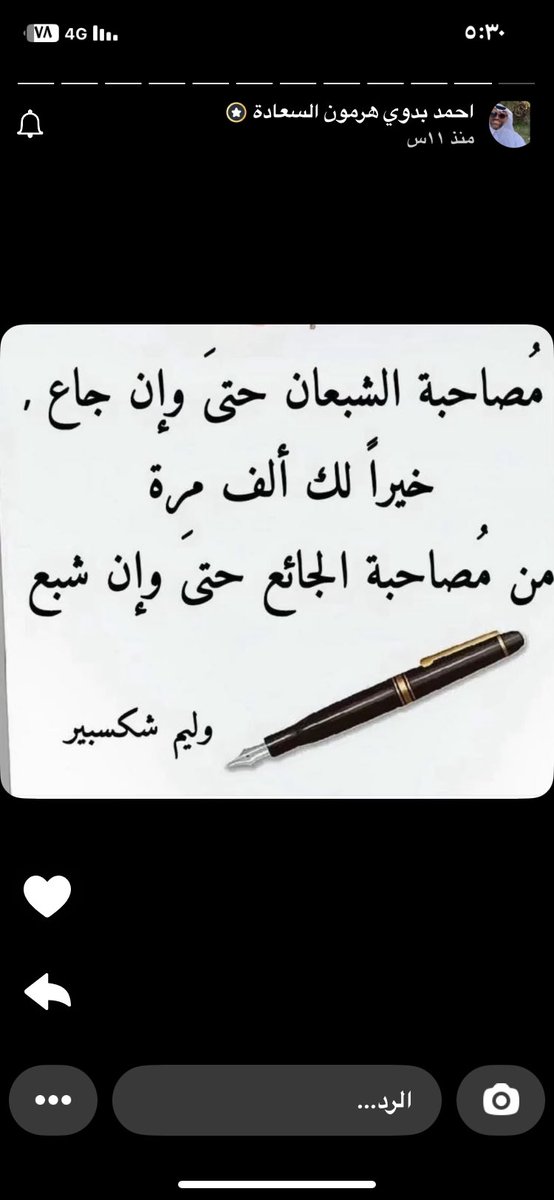 ٥:٣٠
4G ٧٨
احمد بدوي هرمون السعادة
منذ ١١س
مُصاحبة الشبعان حتىَ وإن جاع ,
خيراً لك ألف مرة
من مُصاحبة الجائع حتىَ وإن شبع
وليم شكسبير
الرد...